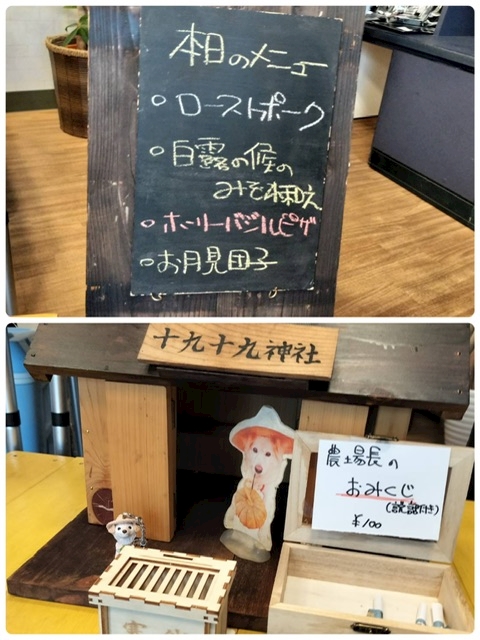 本日のメニュー
○ローストポーク
○白露の候の
みそ和え
○ホーリーバジルピザ
○お月見団子
十九十九神社
農場長の
おみくじ
(説話付き)
¥100